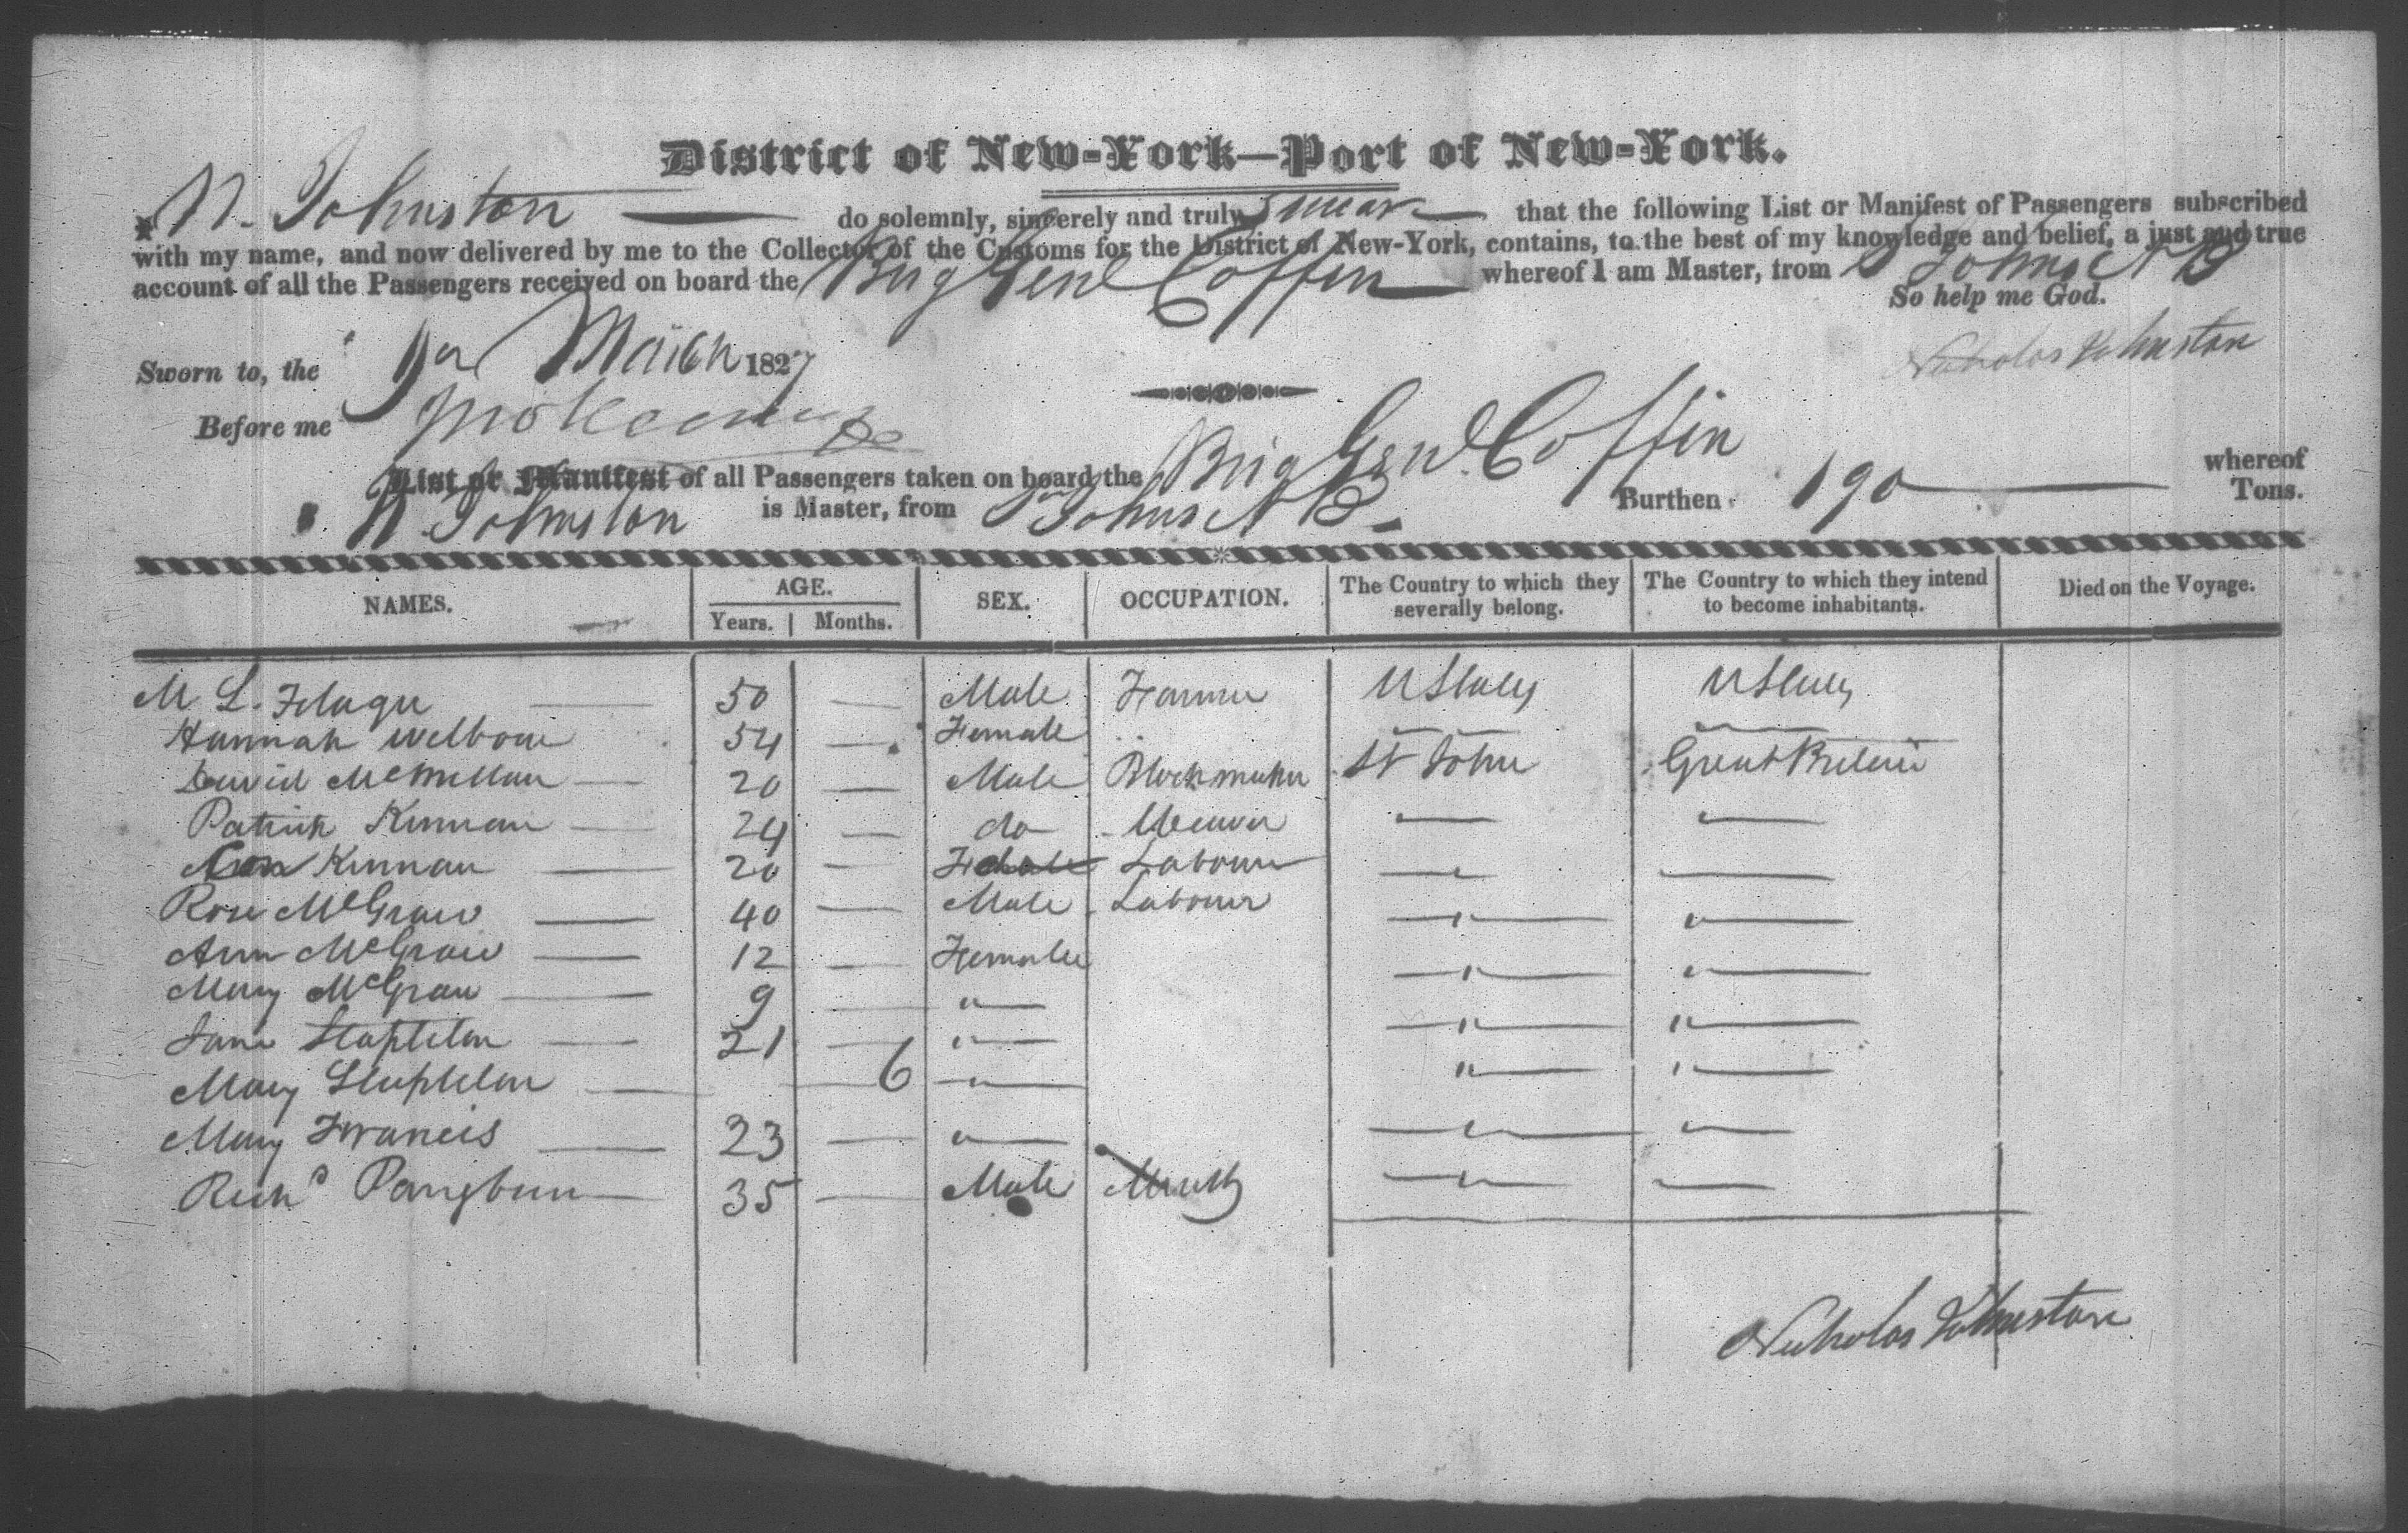 District of New-York—Port of New-York.
I N. Johnston — do solemnly, sincerely and truly swear — that the following List or Manifest of Passengers subscribed
with my name, and now delivered by me to the Collector of the Customs for the District of New-York, contains, to the best of my knowledge and belief, a just and true
account of all the Passengers received on board the Brig Genl Coffin — whereof I am Master, from St Johns N B
So help me God.
Sworn to, the March 1827 Nicholas Johnston
Before me
List or Manifest of all Passengers taken on board the Brig Genl Coffin whereof
N Johnston is Master, from St Johns N B — Burthen 190 — Tons.
NAMES. AGE. SEX. OCCUPATION. The Country to which they severally belong. The Country to which they intend to become inhabitants. Died on the Voyage.
Years. Months.
M L. — 50 — Male Farmer U States U States
Hannah 54 — Female — —
David McMillan — 20 — Male Blockmaker St John Great Britain
Patrick Kinnan — 24 — do Weaver — —
Kinnan — 20 — Labourer — —
Rose McGraw — 40 — Male Labourer — " — " —
Ann McGraw — 12 — Female — " — " —
Mary McGraw — 9 — " — — " — " —
Jane Stapleton — 21 — " — " — " —
Mary Stapleton — 6 — " — — " — " —
Mary Francis — 23 — " — — " — " —
Richd Pangburn — 35 — Male — " — " —
Nicholas Johnston